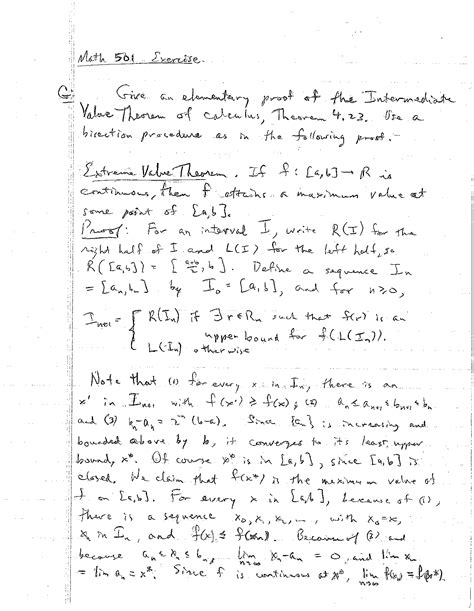 Math 501 Exercise.
G: Give an elementary proof of the Intermediate
Value Theorem of calculus, Theorem 4.23. Use a
bisection procedure as in the following proof.
Extreme Value Theorem. If f: [a,b] → R is
continuous, then f attains a maximum value at
some point of [a,b].
Proof: For an interval I, write R(I) for the
right half of I and L(I) for the left half, so
R([a,b]) = [(a+b)/2, b]. Define a sequence In
= [an, bn] by I0 = [a,b], and for n≥0,
In+1 = { R(In) if ∃ r∈Rn such that f(r) is an
upper bound for f(L(In)).
L(In) otherwise
Note that (1) for every x in In, there is an
x' in In+1 with f(x') ≥ f(x), (2) an ≤ an+1 ≤ bn+1 ≤ bn
and (3) bn-an = 2^-n (b-a). Since {an} is increasing and
bounded above by b, it converges to its least upper
bound, x*. Of course x* is in [a,b], since [a,b] is
closed. We claim that f(x*) is the maximum value of
f on [a,b]. For every x in [a,b], because of (1),
there is a sequence x0, x1, x2, ..., with x0=x,
xn in In, and f(x) ≤ f(xn). Because of (3) and
because an ≤ xn ≤ bn, lim n→∞ xn-an = 0, and lim xn
= lim an = x*. Since f is continuous at x*, lim n→∞ f(xn) = f(x*).